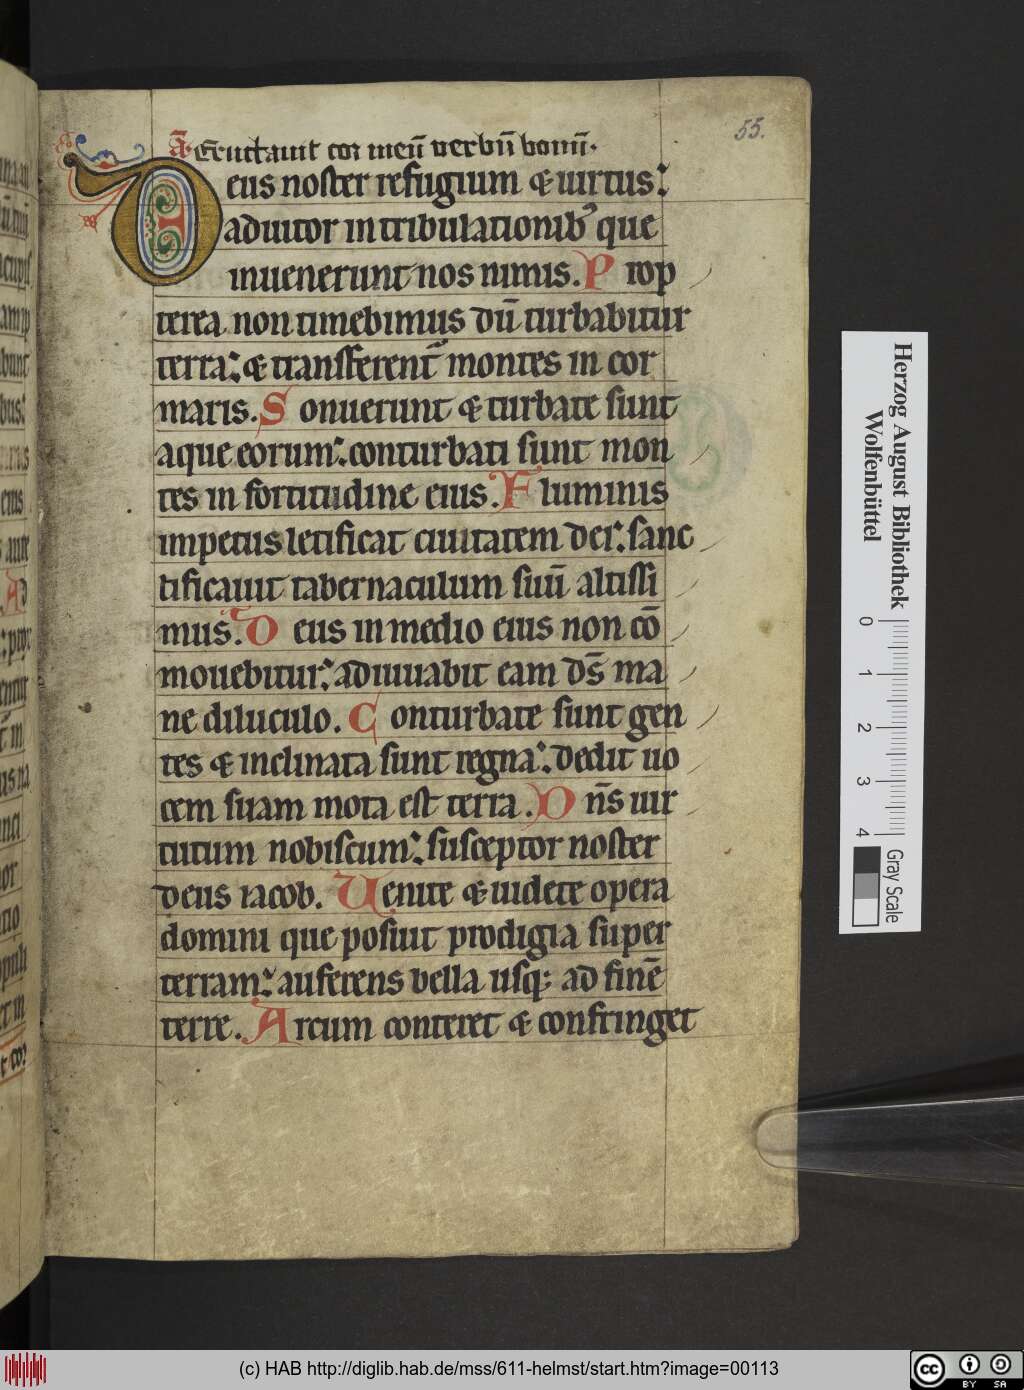 55.
a̅· Eructauit cor meū verbū bonū·
Deus noster refugium & uirtus:
adiutor in tribulationib᷒ que
inuenerunt nos nimis. Prop
terea non timebimus dū turbabitur
terra: & transferent᷑ montes in cor
maris. Sonuerunt & turbate sunt
aque eorum: conturbati sunt mon
tes in fortitudine eius. Fluminis
impetus letificat ciuitatem dei: sanc
tificauit tabernaculum suū altissi
mus. Deus in medio eius non cō
mouebitur: adiuuabit eam ds̄ ma
ne diluculo. Conturbate sunt gen
tes & inclinata sunt regna: dedit uo
cem suam mota est terra. Dn̄s uir
tutum nobiscum: susceptor noster
deus iacob. Uenite & uidete opera
domini que posiuit prodigia super
terram: auferens bella usq; ad finē
terre. Arcum conteret & confringet
Herzog August Bibliothek
Wolfenbüttel
0 1 2 3 4
Gray Scale
(c) HAB http://diglib.hab.de/mss/611-helmst/start.htm?image=00113
cc BY SA